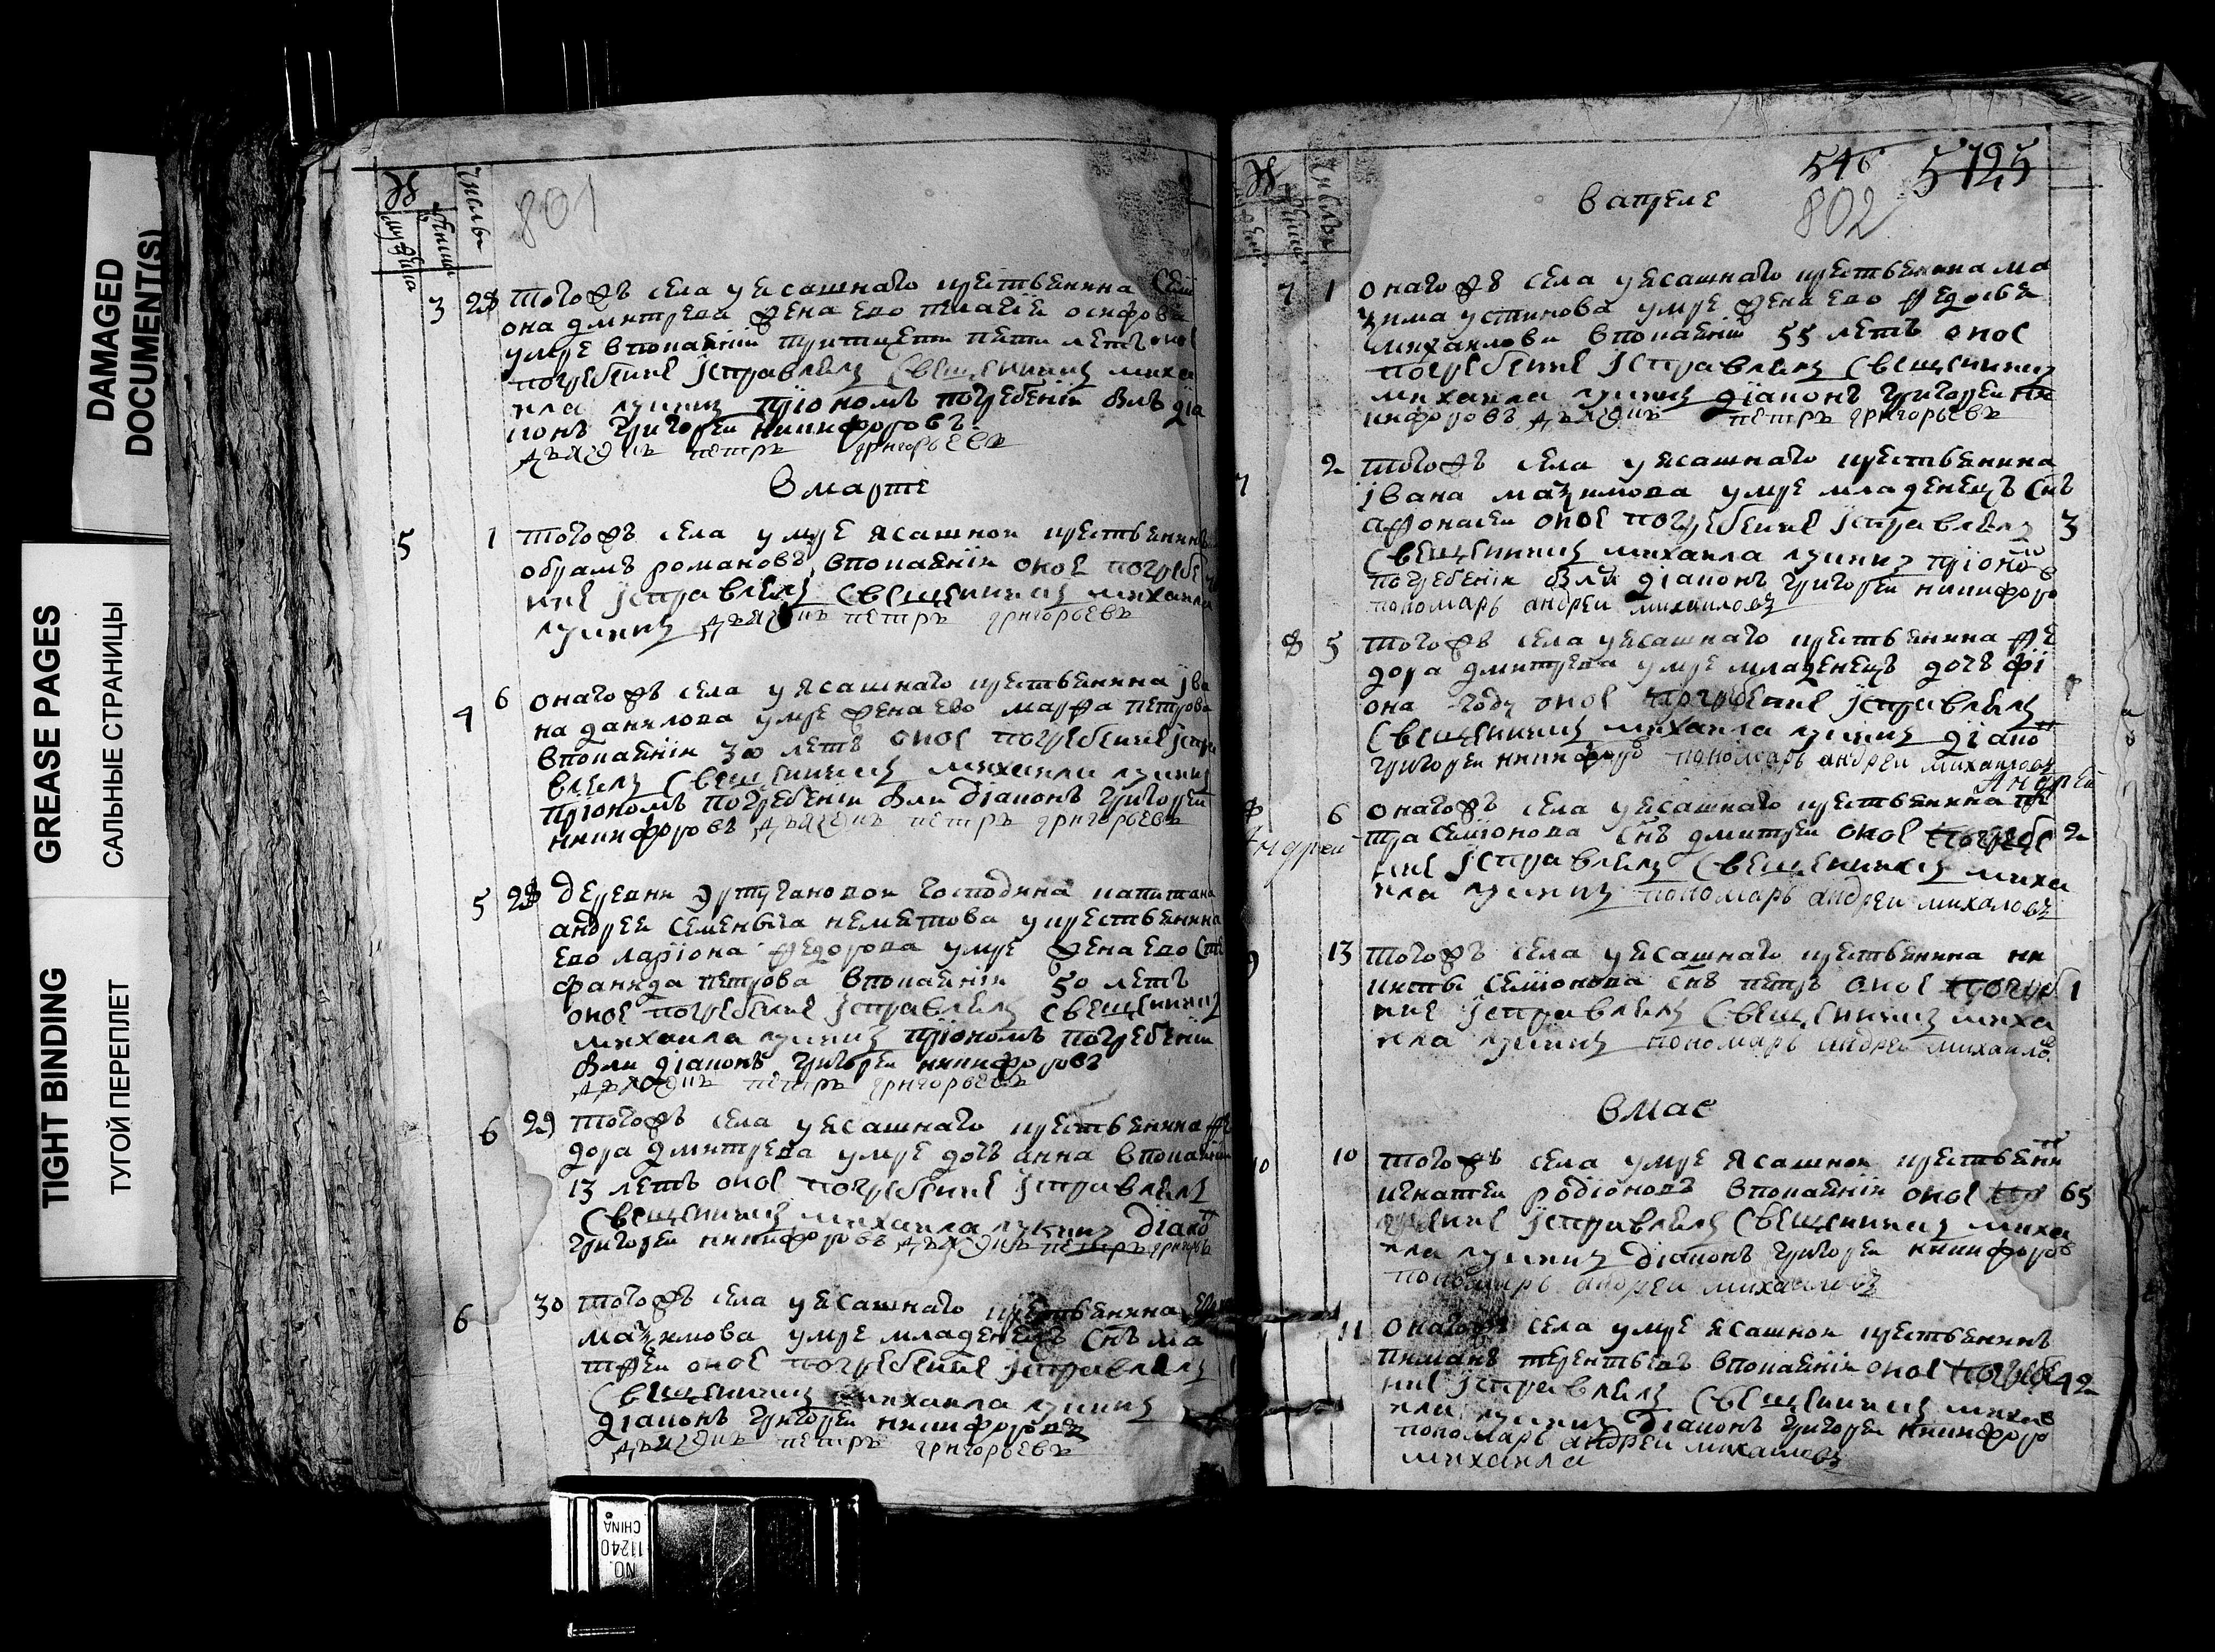 DAMAGED
DOCUMENT(S)
GREASE PAGES
САЛЬНЫЕ СТРАНИЦЫ
TIGHT BINDING
ТУГОЙ ПЕРЕПЛЕТ
числы
801
3 28 тогожъ села у ясашнаго крестьянина
она дмитрева жена ево пелагѣя осифова
умре впокаянiи тритцети пети летъ оное
погребение исправлялъ священникъ миха
ила лукинъ приономъ погребенiи былъ дiа
конъ григореи никифоровъ
дьячокъ петръ григорьевъ
в марте
5 1 тогожъ села умре ясашнои крестьянинъ
обрамъ романовъ впокаянiи оное погребе
ние исправлялъ священникъ михаила
лукинъ дьячокъ петръ григорьевъ
4 6 оногожъ села у ясашнаго крестьянина iва
на данилова умре жена ево марфа петрова
впокаянiи 30 летъ оное погребение испра
влялъ священникъ михаила лукинъ
приономъ погребенiи были дiаконъ григореи
никифоровъ дьячокъ петръ григорьевъ
5 28 деревни господина капитана
андрея семеныча у крестьянина
ево ларiона федорова умре жена ево сте
фанида петрова впокаянiи 50 летъ
оное погребение исправлялъ священникъ
михаила лукинъ приономъ погребенiи
были дiаконъ григореи никифоровъ
дьячокъ петръ григорьевъ
6 29 тогожъ села у ясашнаго крестьянина фе
дора дмитрева умре дочь анна впокаянiи
13 летъ оное погребение исправлялъ
священникъ михаила лукинъ дiаконъ
григореи никифоровъ дьячокъ петръ григорьевъ
6 30 тогожъ села у ясашнаго крестьянина
мазимова умре младенецъ снъ ма
тфеи оное погребение исправлялъ
священникъ михаила лукинъ
дiаконъ григореи никифоровъ
дьячокъ петръ григорьевъ
числы
546 5725
802
в апреле
7 1 оногожъ села у ясашнаго крестьянина ма
зима устинова умре жена ево федосья
михаилова впокаянiи 55 летъ оное
погребение исправлялъ священникъ
михаила лукинъ дiаконъ григореи ни
кифоровъ дьячокъ петръ григорьевъ
7 2 тогожъ села у ясашнаго крестьянина
iвана мазимова умре младенецъ снъ
афонасеи оное погребение исправлялъ 3
священникъ михаила лукинъ приономъ
погребенiи были дiаконъ григореи никифоровъ
пономарь андреи михаиловъ
8 5 тогожъ села у ясашнаго крестьянина фе
дора дмитрева умре младенецъ дочь фi
она году оное погребение исправлялъ
священникъ михаила лукинъ дiаконъ
григореи никифоровъ пономарь андреи михаиловъ
Андрей
8 6 оногожъ села у ясашнаго крестьянина пе
Андреи
тра семiонова снъ дмитреи оное погребе 2
ние исправлялъ священникъ миха
ила лукинъ пономарь андреи михаловъ
13 тогожъ села у ясашнаго крестьянина ни
киты семiонова снъ петръ оное погребе 1
ние исправлялъ священникъ миха
ила лукинъ пономарь андреи михаиловъ
в мае
10 10 тогожъ села умре ясашнои крестьянинъ
игнатеи родiоновъ впокаянiи оное погр 65
ебение исправлялъ священникъ миха
ила лукинъ дiаконъ григореи никифоровъ
пономарь андреи михаиловъ
11 оногожъ села умре ясашнои крестьянинъ
пиманъ терентьевъ впокаянiи оное погребе 42
ние исправлялъ священникъ миха
ила лукинъ дiаконъ григореи никифоровъ
пономарь андреи михаиловъ
михаила
NO.
11240
CHINA